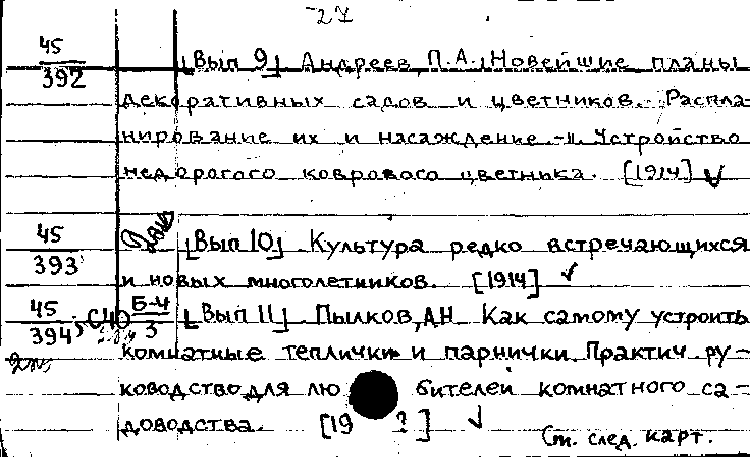 27
45/392 [Вып 9] Андреев, П.А. Новейшие планы
декоративных садов и цветников. Распла-
нирование их и насаждение - и. Устройство
недорогого коврового цветника. [1914] ✓
45/393 [Вып 10] Культура редко встречающихся
и новых многолетников. [1914] ✓
45/394; С40 Б-4/3 [Вып 11] Пылков, АН Как самому устроить
комнатные теплички и парнички. Практич. ру-
ководство для любителей комнатного са-
доводства. [19 ?] ✓
См. след. карт.